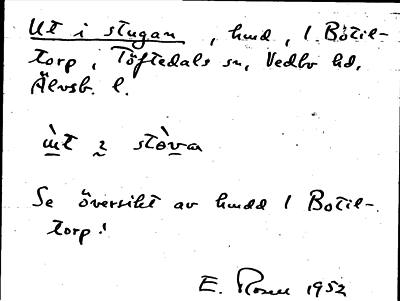 Ut i stugan, hmd, 1 Botil-
torp, Töftedals sn, Vedbo hd,
Älvsb. l.
ùt ı stòva
Se översikt av hmdd 1 Botil-
torp!
E. Rosell 1952